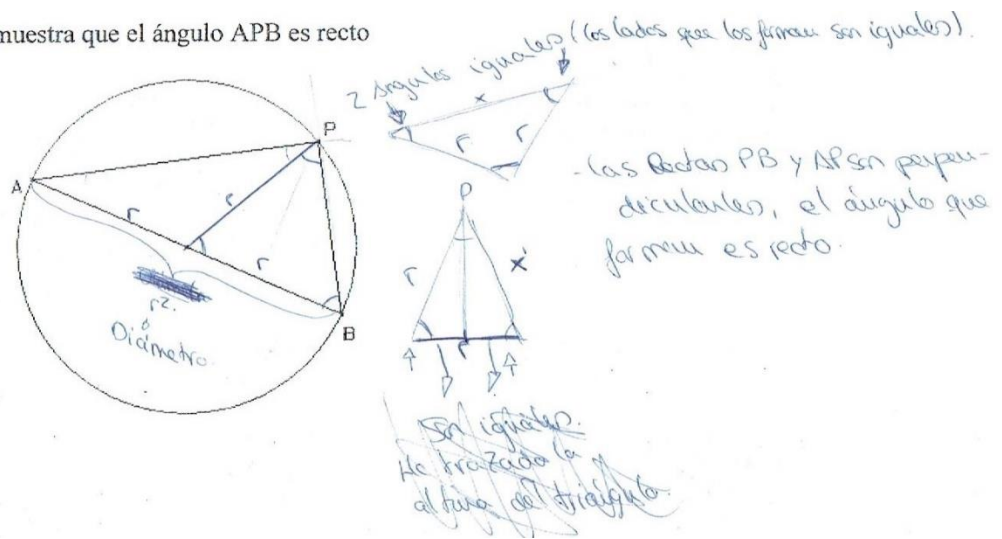 muestra que el ángulo APB es recto
2 ángulos iguales (los lados que los forman son iguales).
x
r
r
P
A
r
r
r
B
r2.
ó
Diámetro
- las Rectas PB y AP son perpen-
diculares, el ángulo que
forman es recto.
P
r
x
r
son iguales.
He trazado la
altura del triángulo